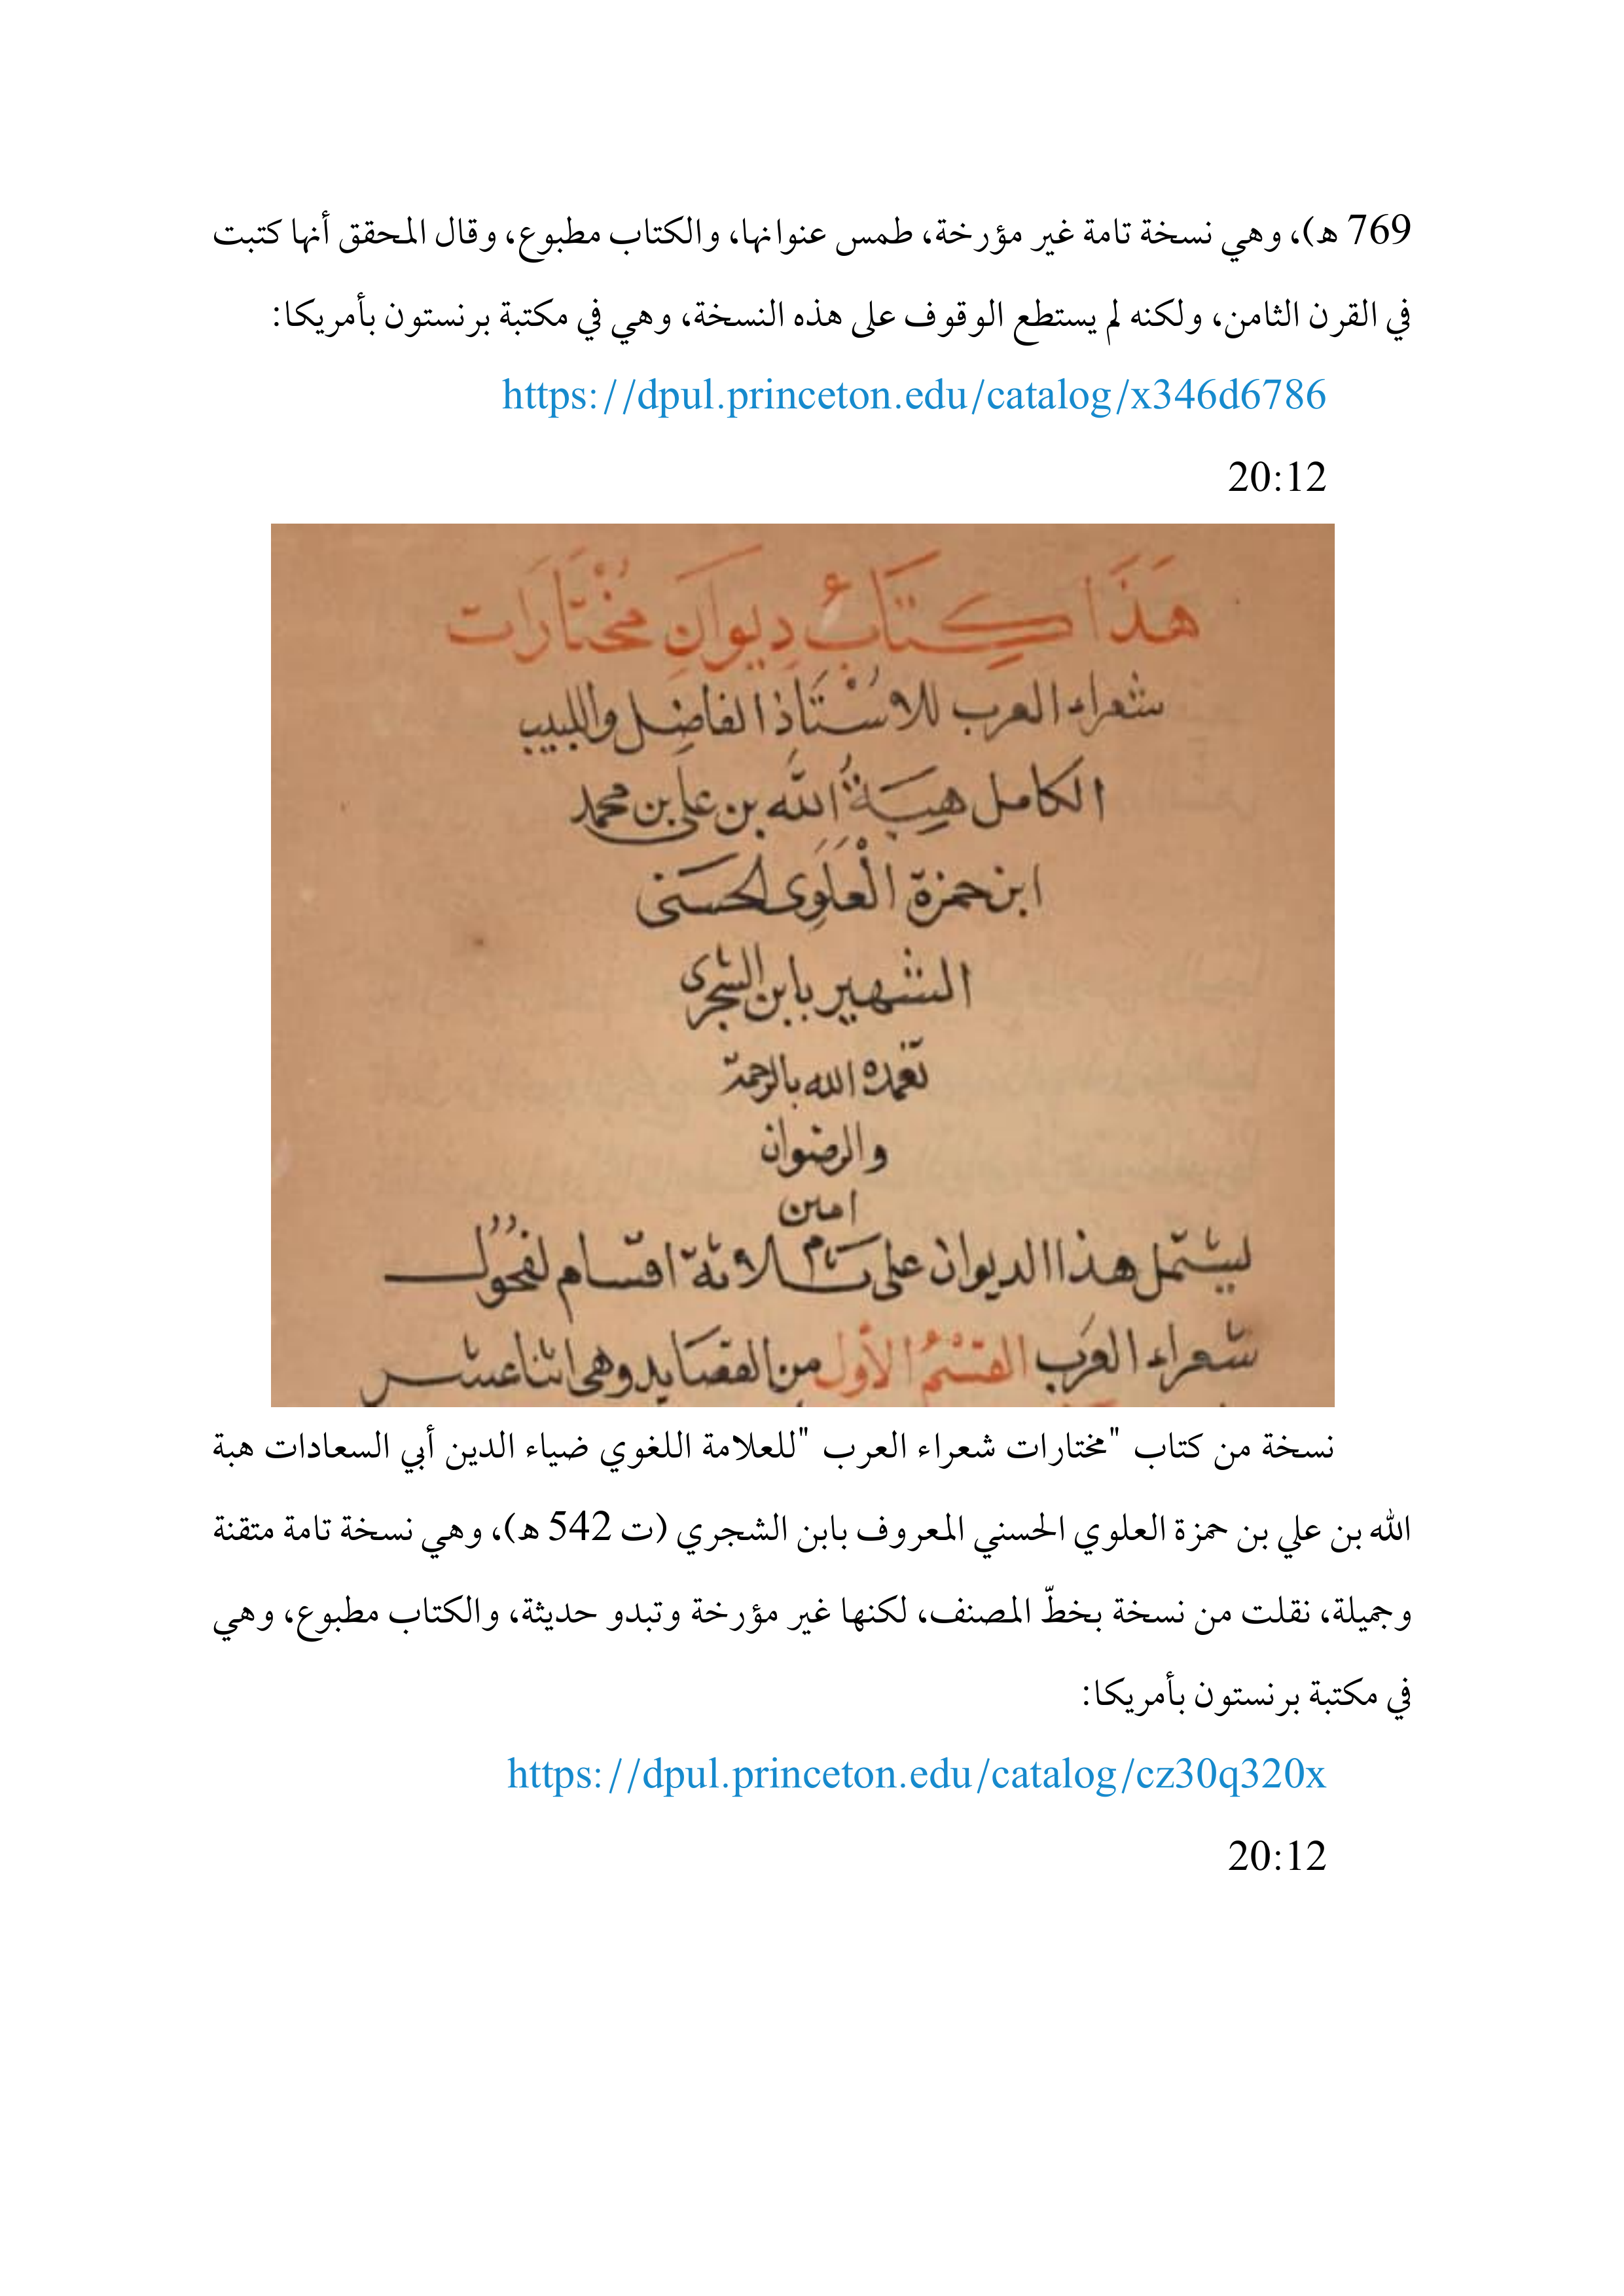 769 هـ)، وهي نسخة تامة غير مؤرخة، طمس عنوانها، والكتاب مطبوع، وقال المحقق أنها كتبت
في القرن الثامن، ولكنه لم يستطع الوقوف على هذه النسخة، وهي في مكتبة برنستون بأمريكا:
https://dpul.princeton.edu/catalog/x346d6786
20:12
هَذَا كِتَابُ دِيوَانِ مُخْتَارَات
شعراء العرب للاُسْتَاذ الفاضِل واللبيب
الكامل هِبَةُ الله بن علي بن محمد
ابن حمزة الْعَلَوِى الحسَنى
الشهير بابن الشجرى
تغمده الله بالرحمة
والرضوان
امين
ليشتمل هذا الديوان على ثلاثة اقسام لفحول
شعراء العَرب القِسْمُ الأول من القصَايد وهى اثنا عشر
نسخة من كتاب "مختارات شعراء العرب "للعلامة اللغوي ضياء الدين أبي السعادات هبة
الله بن علي بن حمزة العلوي الحسني المعروف بابن الشجري (ت 542 هـ)، وهي نسخة تامة متقنة
وجميلة، نقلت من نسخة بخطّ المصنف، لكنها غير مؤرخة وتبدو حديثة، والكتاب مطبوع، وهي
في مكتبة برنستون بأمريكا:
https://dpul.princeton.edu/catalog/cz30q320x
20:12